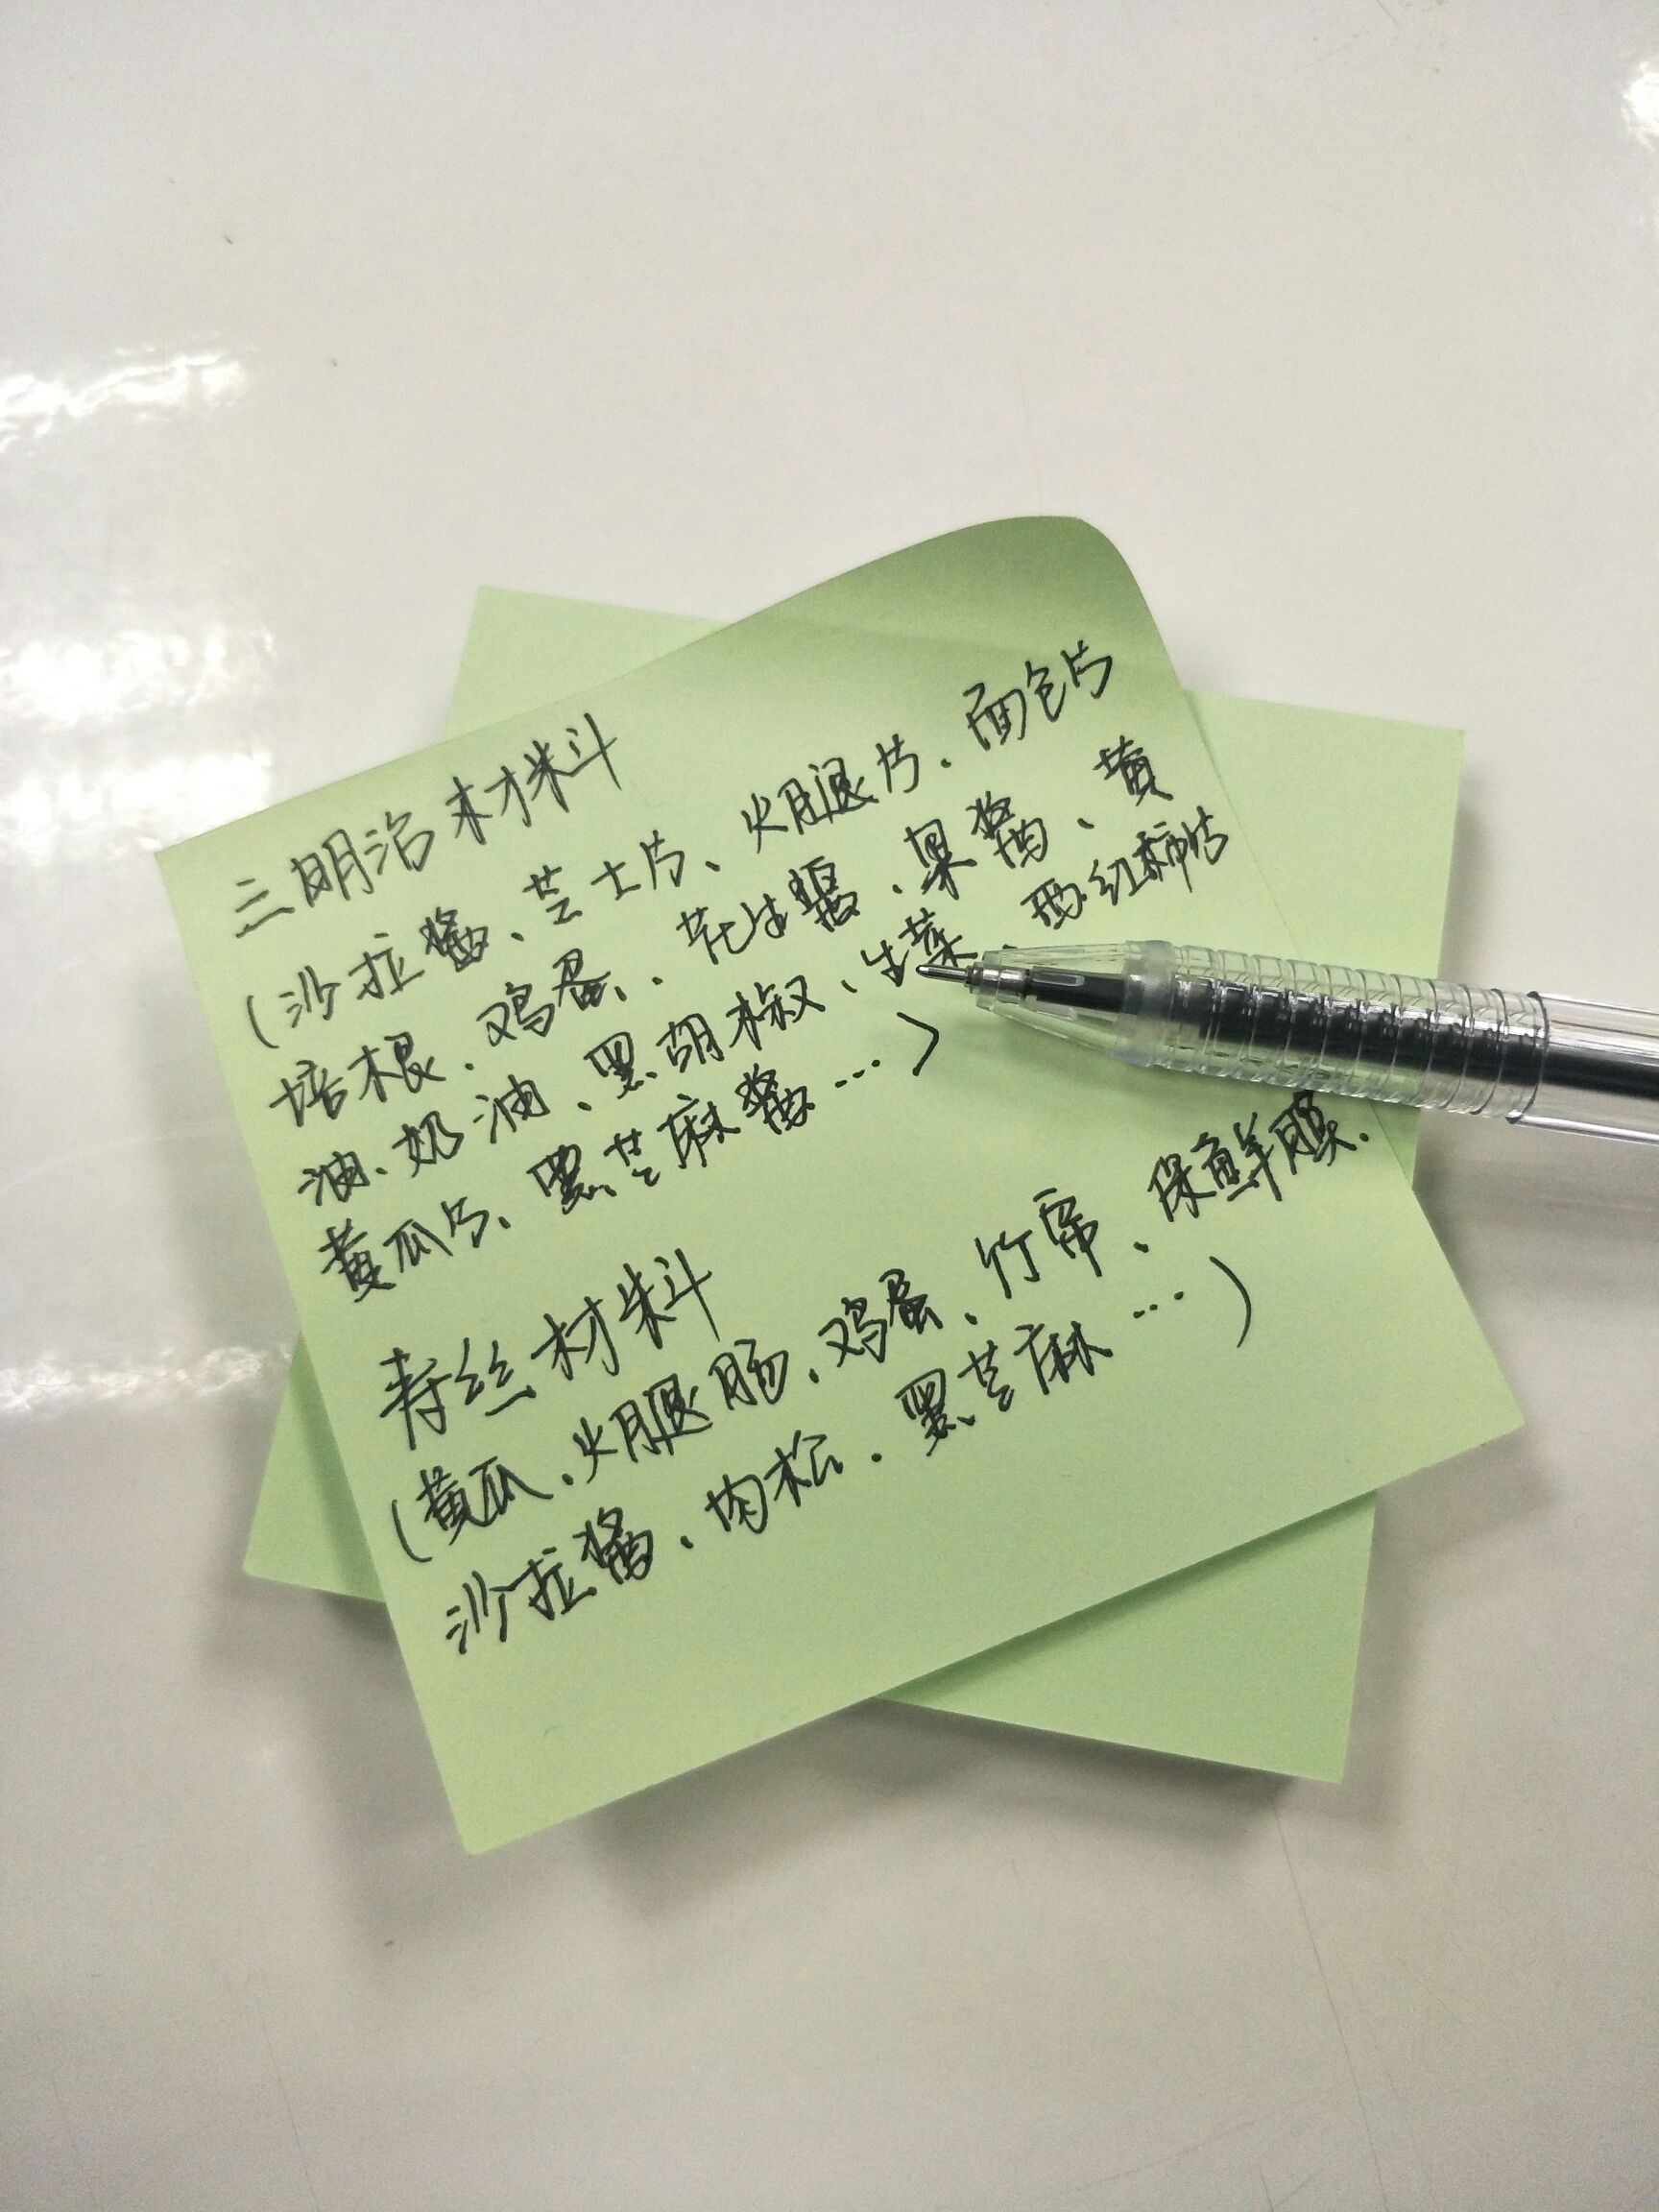 三明治材料
(沙拉酱、芝士片、火腿片、面包片
培根、鸡蛋、花生酱、果酱、黄
油、奶油、黑胡椒、生菜、西红柿片
黄瓜片、黑芝麻酱…)
寿丝材料
(黄瓜、火腿肠、鸡蛋、竹帘、保鲜膜、
沙拉酱、肉松、黑芝麻…)